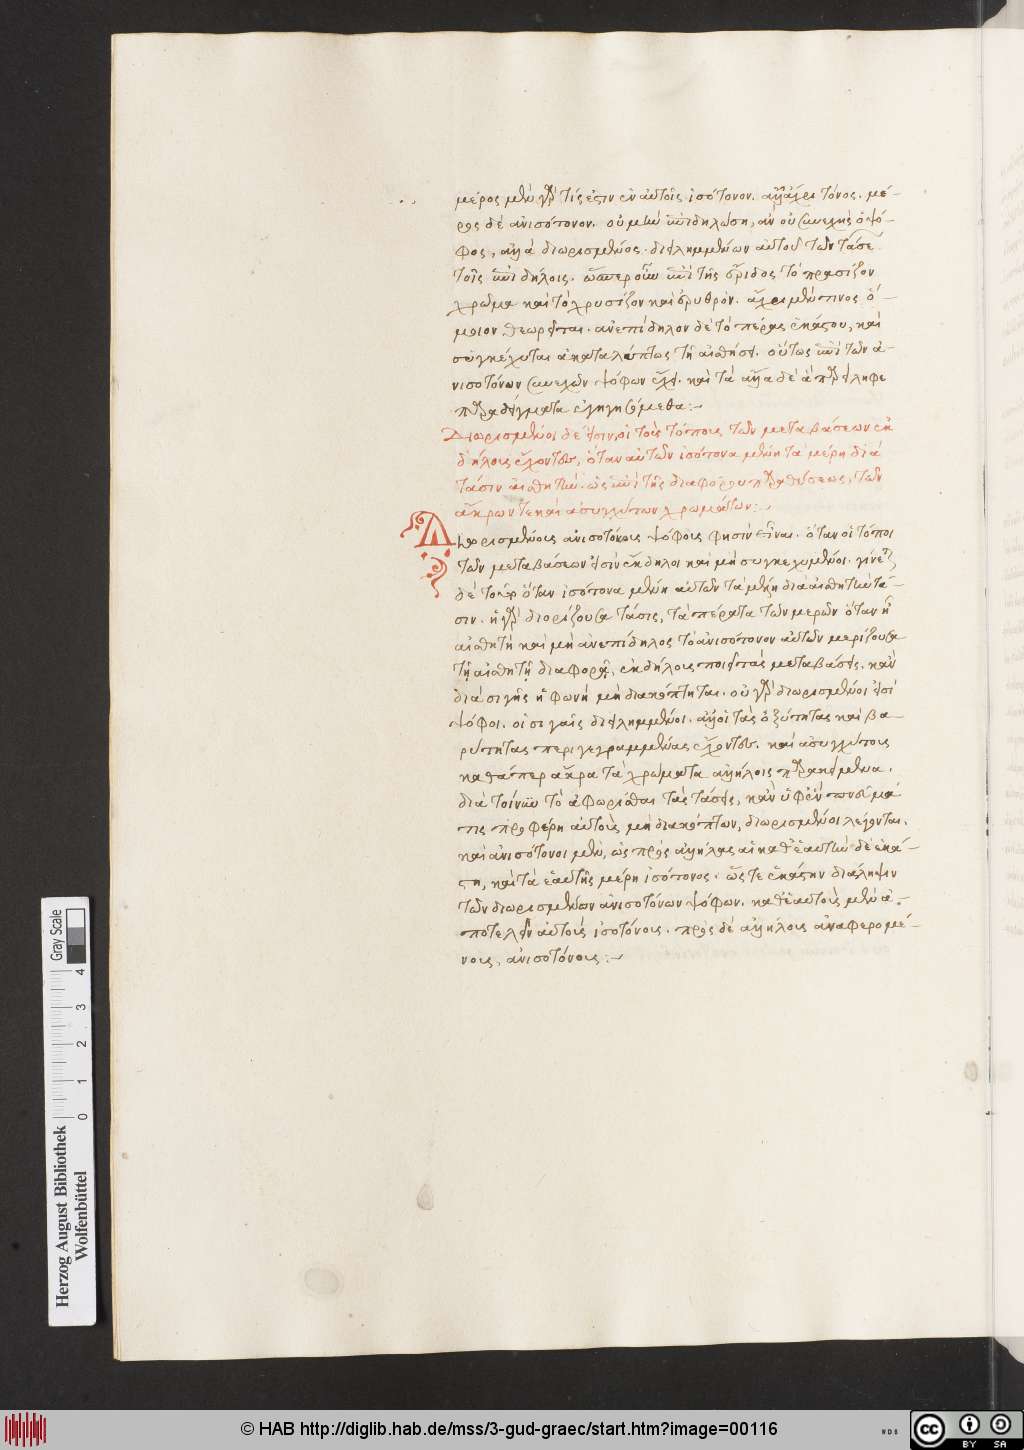 μέρος μὲν γάρ τί ἐστιν ἐν αὐτοῖς ἰσότονον. ἄχρι τόνος. μέ-
ρος δὲ ἀνισότονον. οὐ μὴν ἐπιδηλώση, ἂν οὐ συνεχὴς ὁ ψό-
φος, ἀλλὰ διωρισμένος. διειλημμένων αὐτοῦ τῶν τάσε
τοῖς ἐπιδήλοις. ὥσπερ οὖν ἐπὶ τῆς ἴριδος τὸ πρασίζον
χρῶμα καὶ τὸ χρυσίζον καὶ ἐρυθρόν. ἄχρι μέν τινος ὅ-
μοιον θεωρεῖται. ἀνεπίδηλον δὲ τὸ πέρας ἑκάστου, καὶ
συγκέχυται ἀκαταλήπτως τῇ αἰσθήσει. οὕτως ἐπὶ τῶν ἀ-
νισοτόνων συνεχῶν ψόφων ἔχει. καὶ τὰ ἄλλα δὲ ἃ παρείληφε
παραδείγματα ἐξηγησόμεθα:~
Διωρισμένοι δέ εἰσιν, οἱ τοὺς τόπους τῶν μεταβάσεων ἐκ
δήλους ἔχοντες, ὅταν αὐτῶν ἰσότονα μένῃ τὰ μέρη διὰ
τάσιν αἰσθητήν. ὡς ἐπὶ τῆς διαφόρου παραθέσεως, τῶν
ἄκρων τε καὶ ἀσυγχύτων χρωμάτων:~
Διωρισμένους ἀνισοτόνους ψόφους φησὶν εἶναι. ὅταν οἱ τόποι
τῶν μεταβάσεων εἰσὶν ἔκδηλοι καὶ μὴ συγκεχυμένοι. γίνεται
δὲ τοῦτο ὅταν ἰσότονα μένῃ αὐτῶν τὰ μέρη διὰ αἰσθητὴν τά-
σιν. ἡ γὰρ διορίζουσα τάσις, τὰ πέρατα τῶν μερῶν ὅταν ᾖ
αἰσθητὴ καὶ μὴ ἀνεπίδηλος τὸ ἀνισότονον αὐτῶν μερίζουσα
τῇ αἰσθητῇ διαφορᾷ, ἐκδήλους ποιεῖ τὰς μεταβάσεις, κἂν
διὰ σιγῆς ἡ φωνὴ μὴ διακόπτηται. οὐ γὰρ διωρισμένοι εἰσὶ
ψόφοι. οἱ σιγαῖς διειλημμένοι. ἀλλ' οἱ τὰς ὀξύτητας καὶ βα-
ρύτητας περιγεγραμμένας ἔχοντες. καὶ ἀσυγχύτους
καθάπερ ἄκρα τὰ χρώματα ἀλλήλοις παρακείμενα.
διὰ τοίνυν τὸ ἀφωρίσθαι τὰς τάσεις, κἂν ὑφ' ἓν πνεῦμά
τις προφέρῃ αὐτοὺς μὴ διακόπτων, διωρισμένοι λέγονται.
καὶ ἀνισότονοι μέν, ὡς πρὸς ἀλλήλας αἱ καθ' ἑαυτὴν δὲ ἑκά-
στη, κατὰ ἑαυτῆς μέρη ἰσότονος. ὥστε ἑκάστην διάληψιν
τῶν διωρισμένων ἀνισοτόνων ψόφων. καθ' ἑαυτοὺς μὲν ἀ-
ποτελεῖν αὐτοὺς ἰσοτόνους. πρὸς δὲ ἀλλήλους ἀναφερομέ-
νους, ἀνισοτόνους:~
Herzog August Bibliothek
Wolfenbüttel
0 1 2 3 4
Gray Scale
© HAB http://diglib.hab.de/mss/3-gud-graec/start.htm?image=00116
WDB
cc BY SA